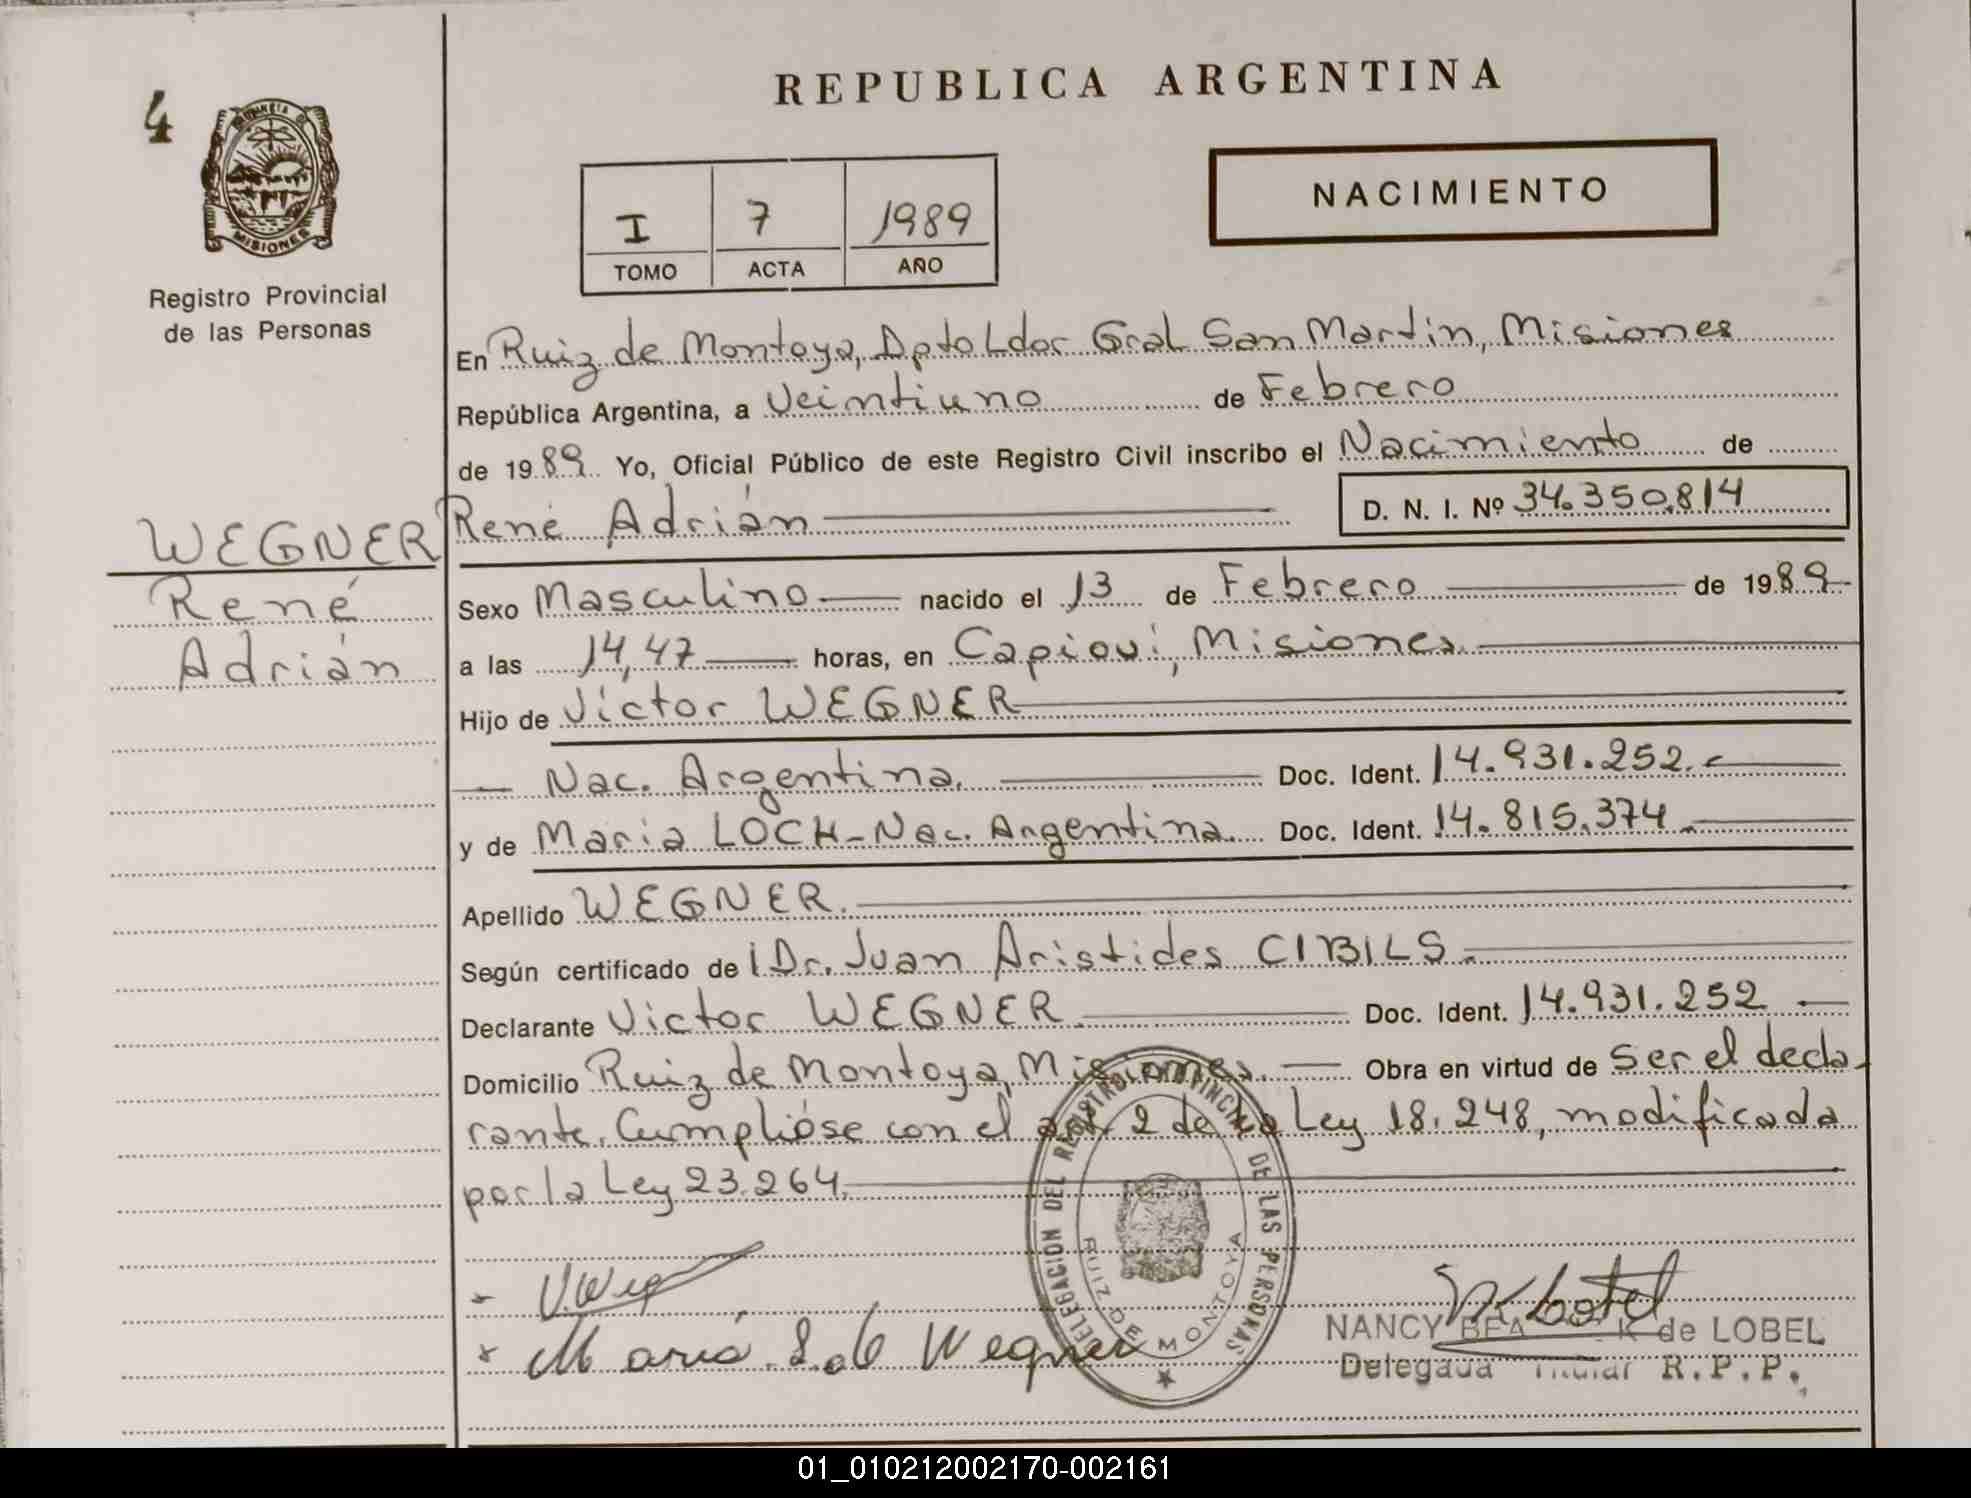 REPUBLICA ARGENTINA
4
PROVINCIA DE
MISIONES
Registro Provincial
de las Personas
I 7 1989
TOMO ACTA AÑO
NACIMIENTO
En Ruiz de Montoya, Dpto Ldor Gral San Martin, Misiones
República Argentina, a Veintiuno de Febrero
de 1989 Yo, Oficial Público de este Registro Civil inscribo el Nacimiento de
WEGNER
René
Adrián
René Adrián D. N. I. Nº 34.350.814
Sexo Masculino nacido el 13 de Febrero de 1989
a las 14,47 horas, en Capioví, Misiones.
Hijo de Victor WEGNER
Nac. Argentina. Doc. Ident. 14.931.252.-
y de Maria LOCH-Nac. Argentina. Doc. Ident. 14.815.374.
Apellido WEGNER.
Según certificado del Dr. Juan Aristides CIBILS.
Declarante Victor WEGNER. Doc. Ident. 14.931.252
Domicilio Ruiz de Montoya, Misiones. Obra en virtud de ser el decla-
rante. Cumplióse con el art 2 de la Ley 18.248, modificada
por la Ley 23.264.
DELEGACION DEL REGISTRO PROVINCIAL DE LAS PERSONAS
RUIZ DE MONTOYA
x V. Weg
x Maria L de Wegner
NANCY de LOBEL
Delegada Titular R.P.P.
01_010212002170-002161